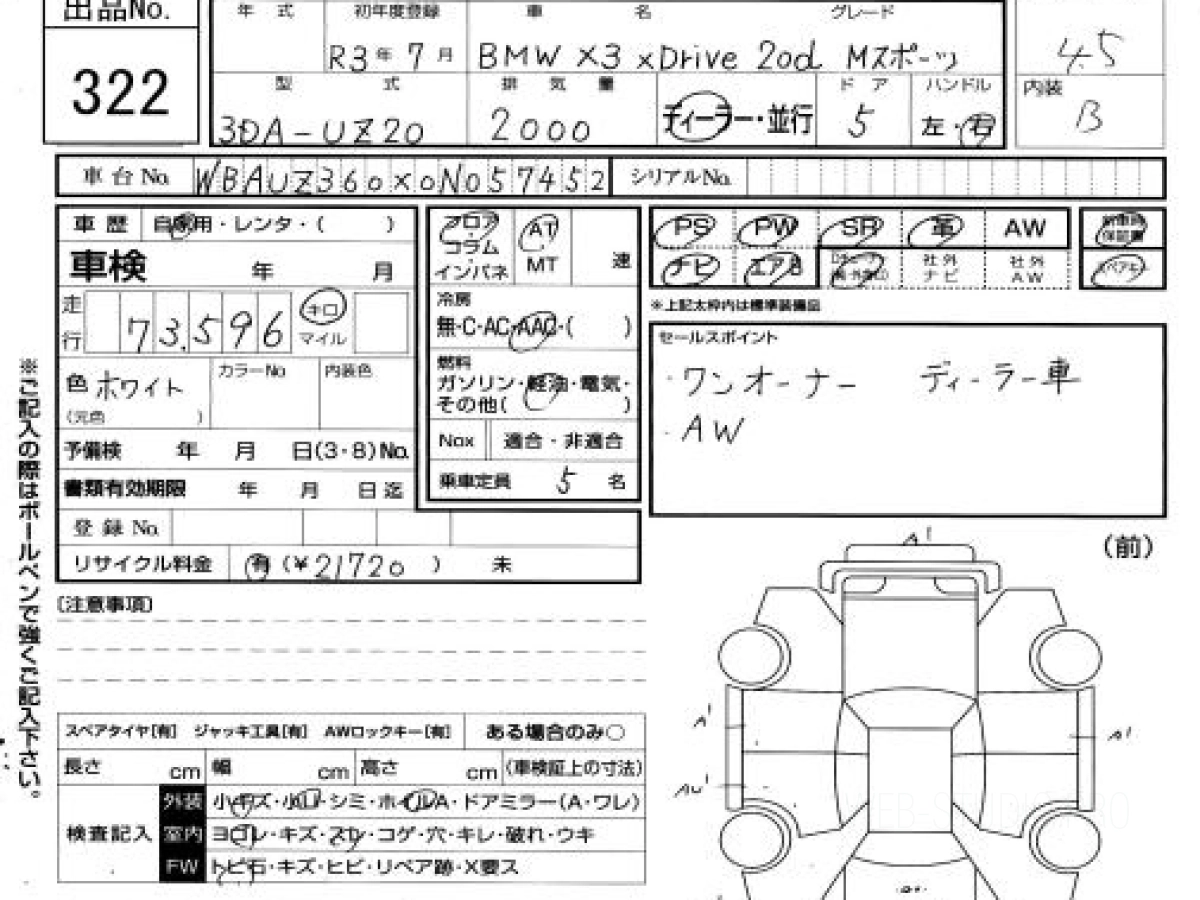 出品No.
322
年 式 初年度登録 車 名 グレード
R3年 7月 BMW X3 xDrive 20d Mスポーツ
4.5
型 式 排 気 量 ドア ハンドル
3DA-UZ20 2000 ディーラー・並行 5 左・右
内装
B
車台No. WBAUZ360X0N057452 シリアルNo.
車歴 自家用・レンタ・( )
車検 年 月
走行 73,596 キロ マイル
色 ホワイト カラーNo 内装色
(元色 )
予備検 年 月 日(3・8)No.
書類有効期限 年 月 日迄
登録No.
リサイクル料金 有 (¥21720 ) 未
フロア
コラム
インパネ
AT
MT
速
冷房
無・C・AC・AAC・( )
燃料
ガソリン・軽油・電気・
その他( )
Nox 適合・非適合
乗車定員 5 名
PS PW SR 革 AW
ナビ エアB 社外ナビ 社外AW
保証書
スペアキー
※上記太枠内は標準装備品
セールスポイント
・ワンオーナー ディーラー車
・AW
※ご記入の際はボールペンで強くご記入下さい。
(注意事項)
スペアタイヤ[有] ジャッキ工具[有] AWロックキー[有] ある場合のみ○
長さ cm 幅 cm 高さ cm (車検証上の寸法)
検査記入
外装 小キズ・小凹・シミ・ホイルA・ドアミラー(A・ワレ)
室内 ヨゴレ・キズ・スレ・コゲ・穴・キレ・破れ・ウキ
FW トビ石・キズ・ヒビ・リペア跡・X要ス
(前)
A1
A1
A1
AU1